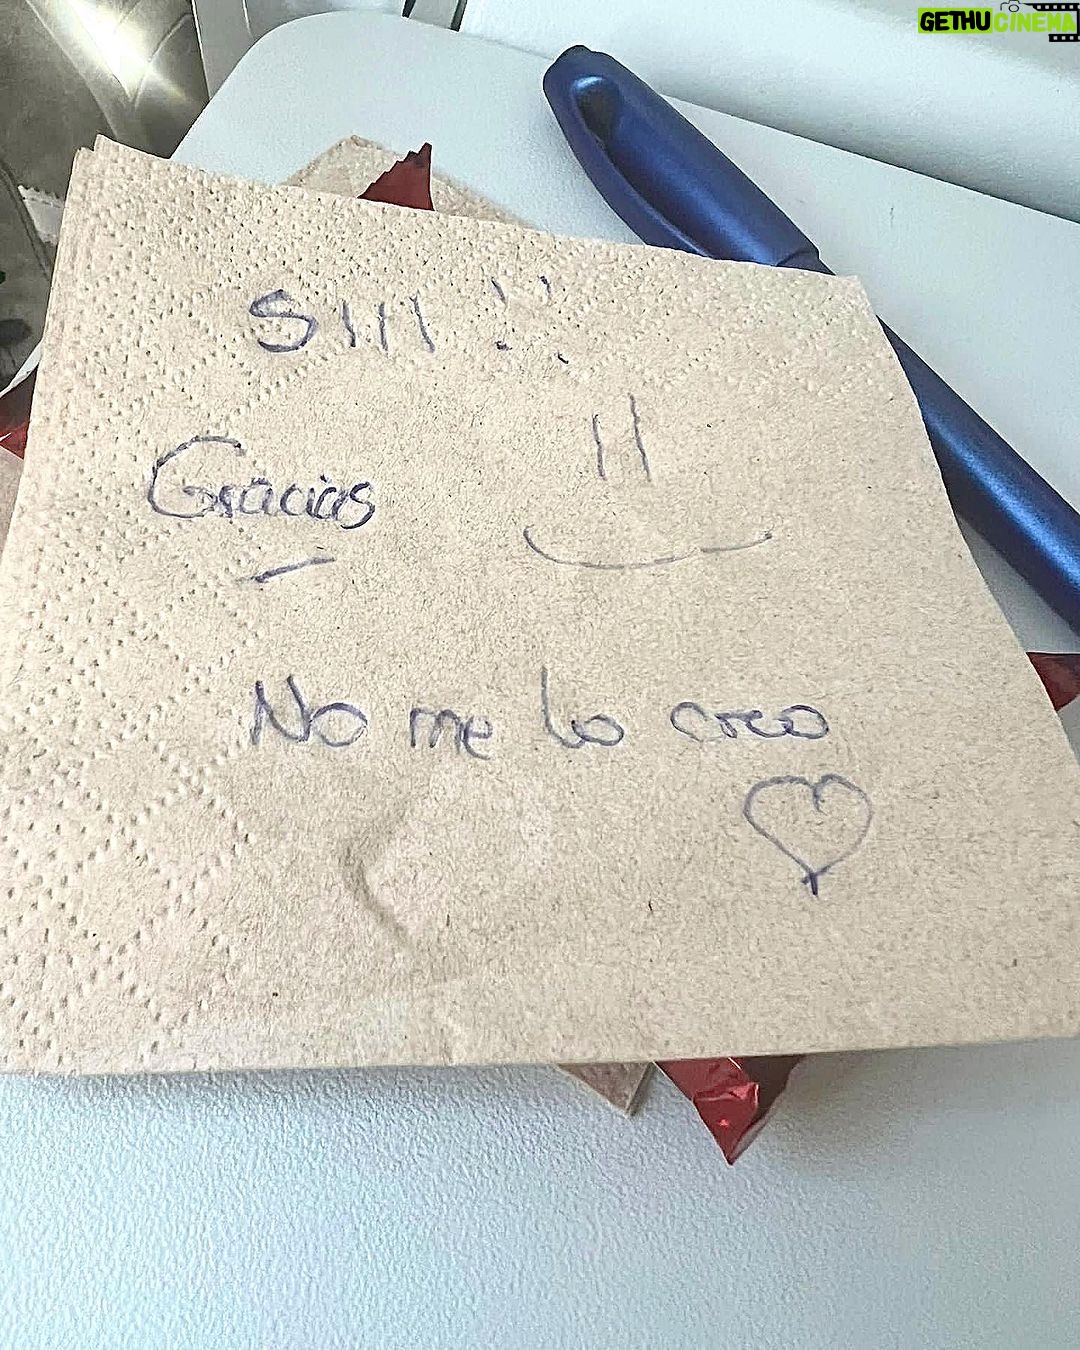 GETHUCINEMA
SIII !!
Gracias
No me lo creo